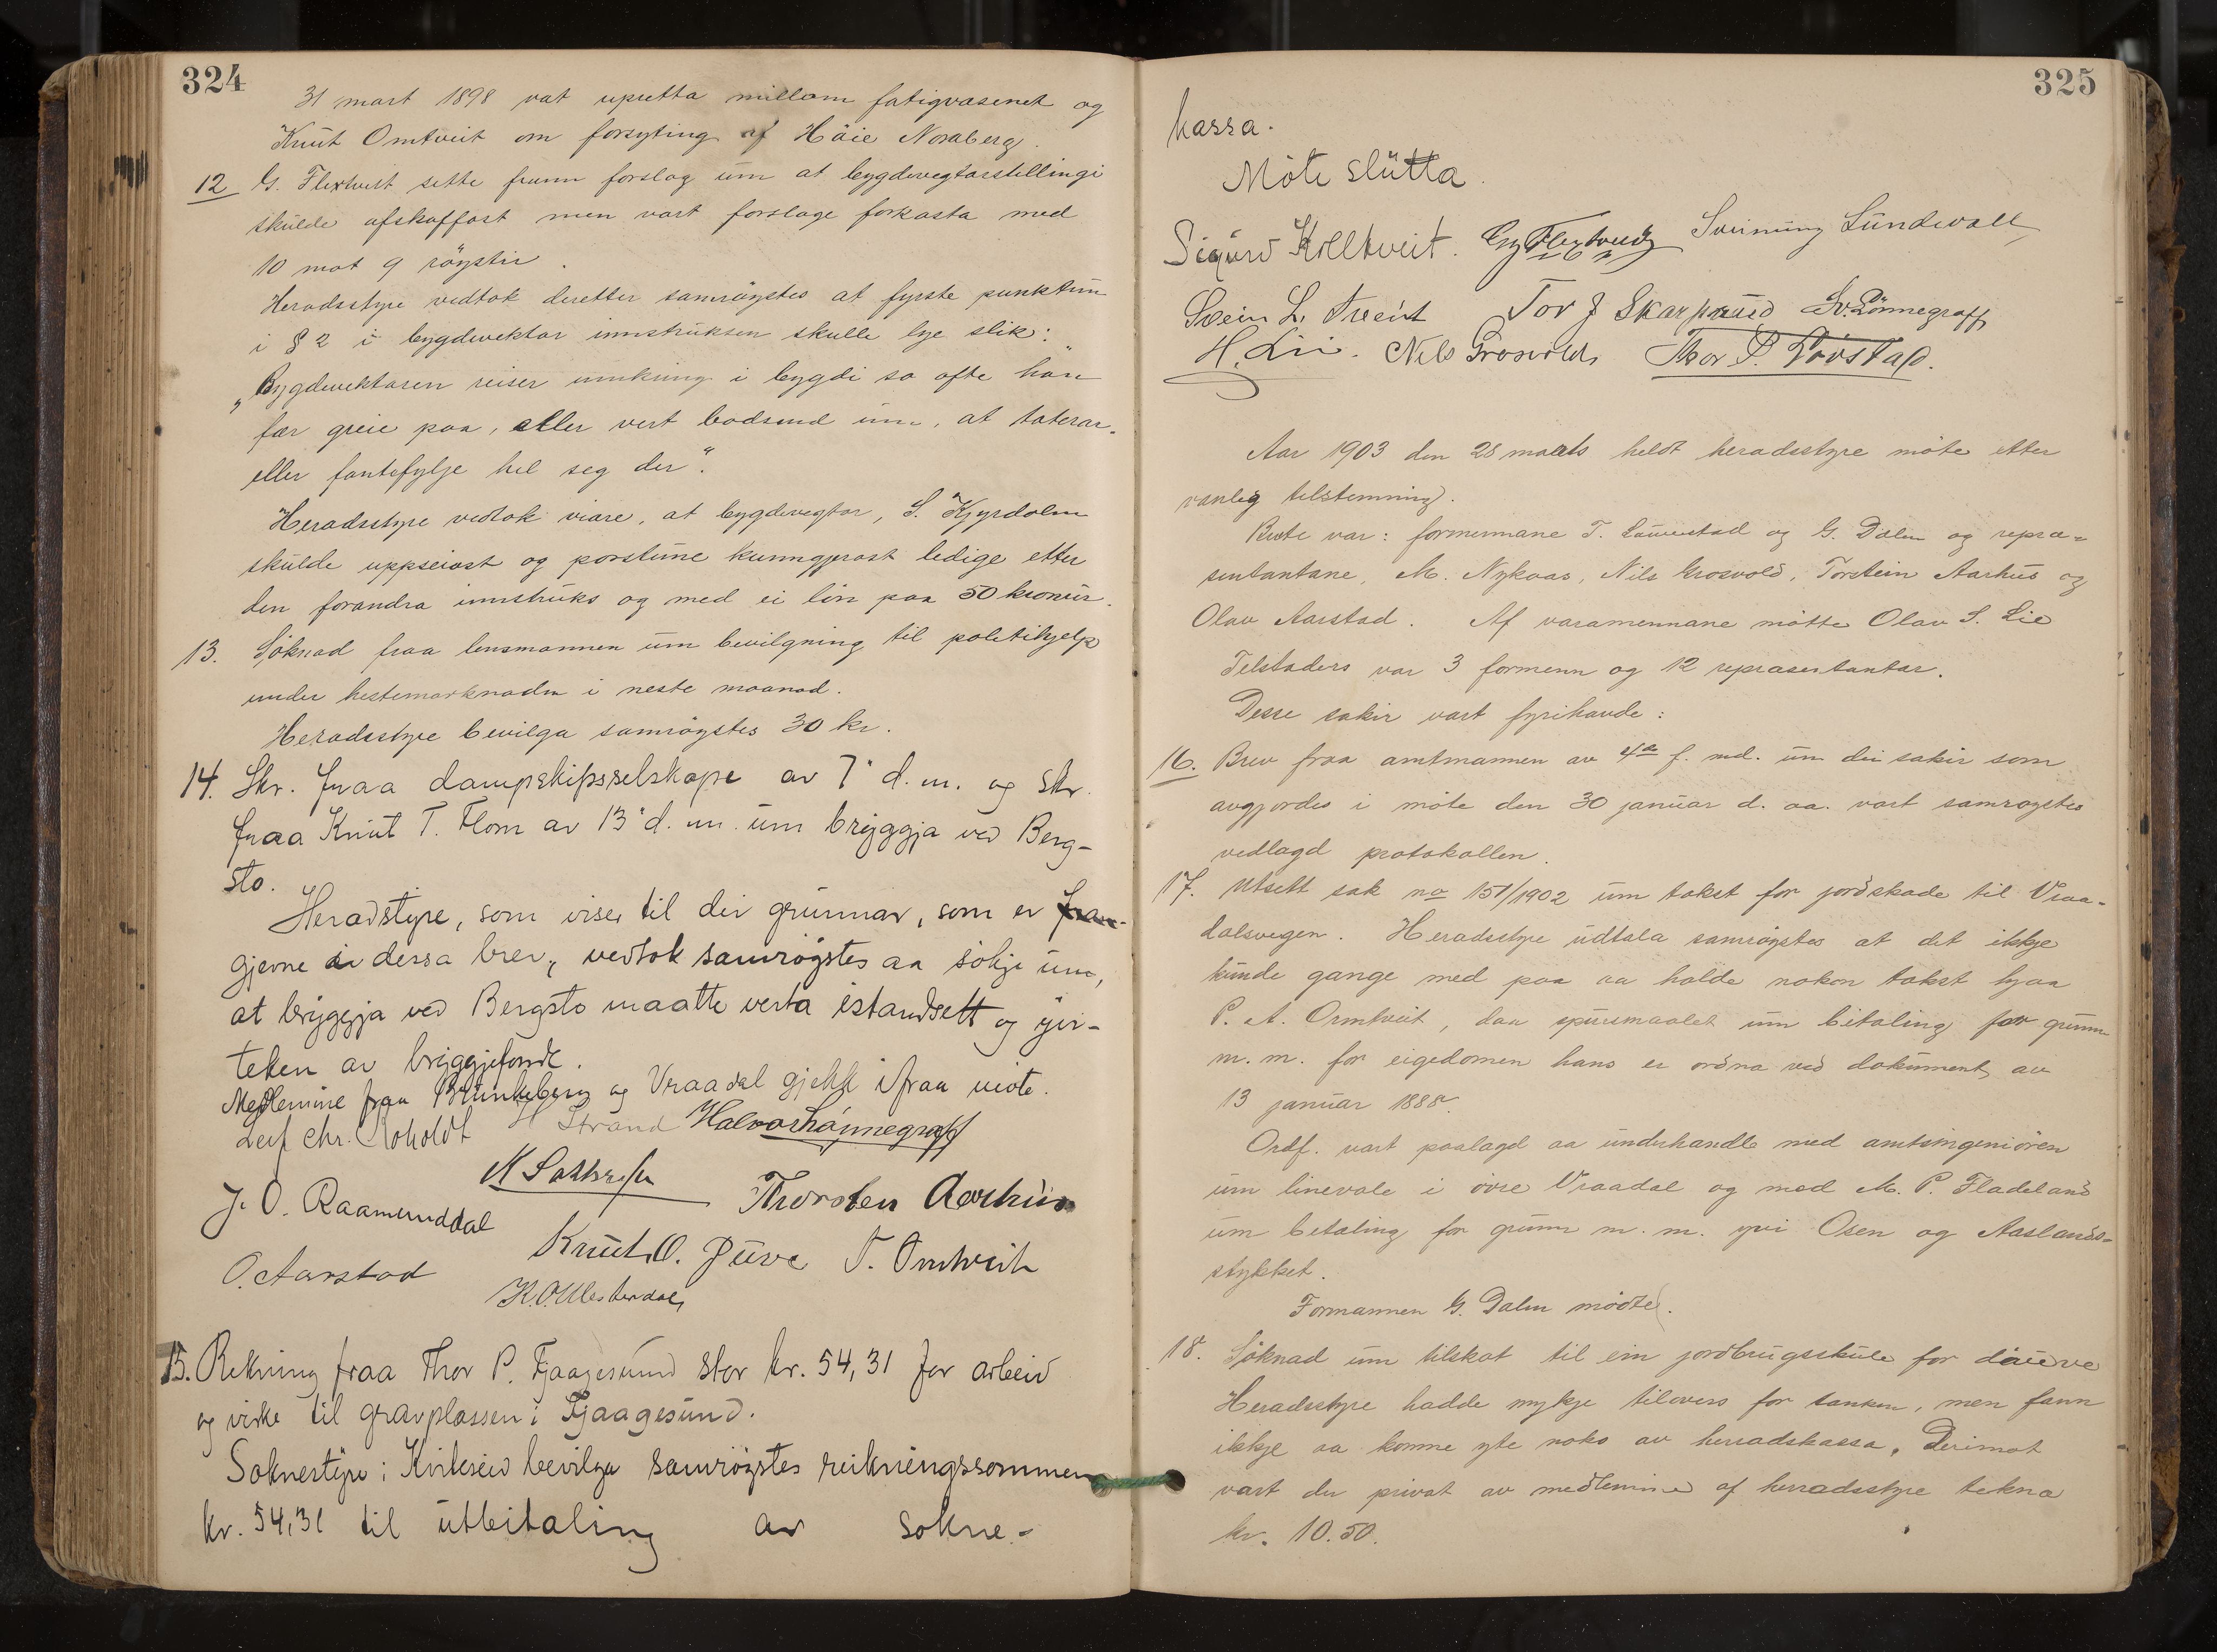 324
31 mart 1898 vat upretta millom fatigvasenet og
Knut Omtveit om forsyting af Häie Noraberg.
12 G. Flextveit sette framm forslag um at bygdevegtarstellingi
skulde afskaffast men vart forslage forkasta med
10 mot 9 röyster.
Heradsstyre vedtok deretter samröystes at fyrste punktum
i § 2 i bygdevektar innstruksen skulle lye slik:
„Bygdevektaren reiser umkring i bygdi so ofte han
fær greie paa, eller vert bodsend um, at taterar-
eller fantefylje hel seg der“.
Heradsstyre vedtok viare, at bygdevegtar, S. Kyrdalen
skulde uppseiast og postune kunngjerast ledige etter
den forandra innstruks og med ei lön paa 50 kronur.
13. Söknad fraa lensmannen um bevilgning til politihjelp
under hestemarknaden i neste maanad.
Heradsstyre bevilga samröystes 30 kr.
14. Skr. fraa dampskipsselskape av 7' d. m. og skr.
fraa Knut T. Flom av 13' d. m. um bryggja ved Berg-
sto.
Heradstyre, som viser til dei grunnar, som er fram-
gjevne i dessa brev, vedtok samröystes aa sökje um,
at bryggja ved Bergsto maatte verta istandsett og yvi-
teken av bryggjefonde.
Medlemine fraa Brunkeberg og Vraadal gjekk ifraa möte.
Leif Chr. Roholdt H Strand Halvor Lönnegraff
J. O. Raamunddal Thorsten Aarhus
O. Aarstad Knut O. Juve T. Omtveit
K. O. Vlesterdal
15. Rekning fraa Thor P. Fjaagesund stor kr. 54,31 for arbeid
og virke til gravplassen i Fjaagesund.
Soknestyre i Kviteseid bevilga samröystes reikningssommen
kr. 54,31 til utbeitaling av sokne-
325
kassa.
Möte slutta.
Sigurd Killtveit. G Flextveit Sveinung Lundevall
Svein L. Tveit Tor J Skarprud Sv. Lönnegraff
H. Lii. Nils Grosvold Thor P. Lövstad.
Aar 1903 den 28 marts heldt heradsstyre möte etter
vanleg tilstemning.
Möte var: formennane T. Lauvestad og G. Dalen og repræ-
sentantane, M. Nykaas, Nils Grosvold, Torstein Aarhus og
Olav Aarstad. Af varamennane mötte Olav S. Lie
Telstaders var 3 formenn og 12 repræsentantar.
Desse sakir vart fyrihavde:
16. Brev fraa amtmannen av 4de f. md. um dei sakir som
avgjordes i möte den 30 januar d. aa. vart samröystes
vedlagd protokollen.
17. Utsett sak no 151/1902 um takst for jordskade til Vraa-
dalsvegen. Heradsstyre udtala samröystes at det ikkje
kunde gange med paa aa halde nokon takst hjaa
P. A. Ormtveit, daa spursmaalet um bitaling for grunn
m. m. for eigedomen hans er ordna ved dokument av
13 januar 1888.
Ordf. vart paalagd aa underhandle med amtsingeniören
um linevale i övre Vraadal og med M. P. Fladeland
um betaling for grunn m. m. yvi Osen og Aaslands-
stykket.
Formannen G. Dalen mödte.
18. Söknad um tilskot til ein jordbrugsskule for dauve
Heradsstyre hadde mykje tilovers for tanken, men fann
ikkje aa konne yte noko av herradskassa. Derimot
vart der privat av medlemine af herradsstyre tekna
kr. 10.50.